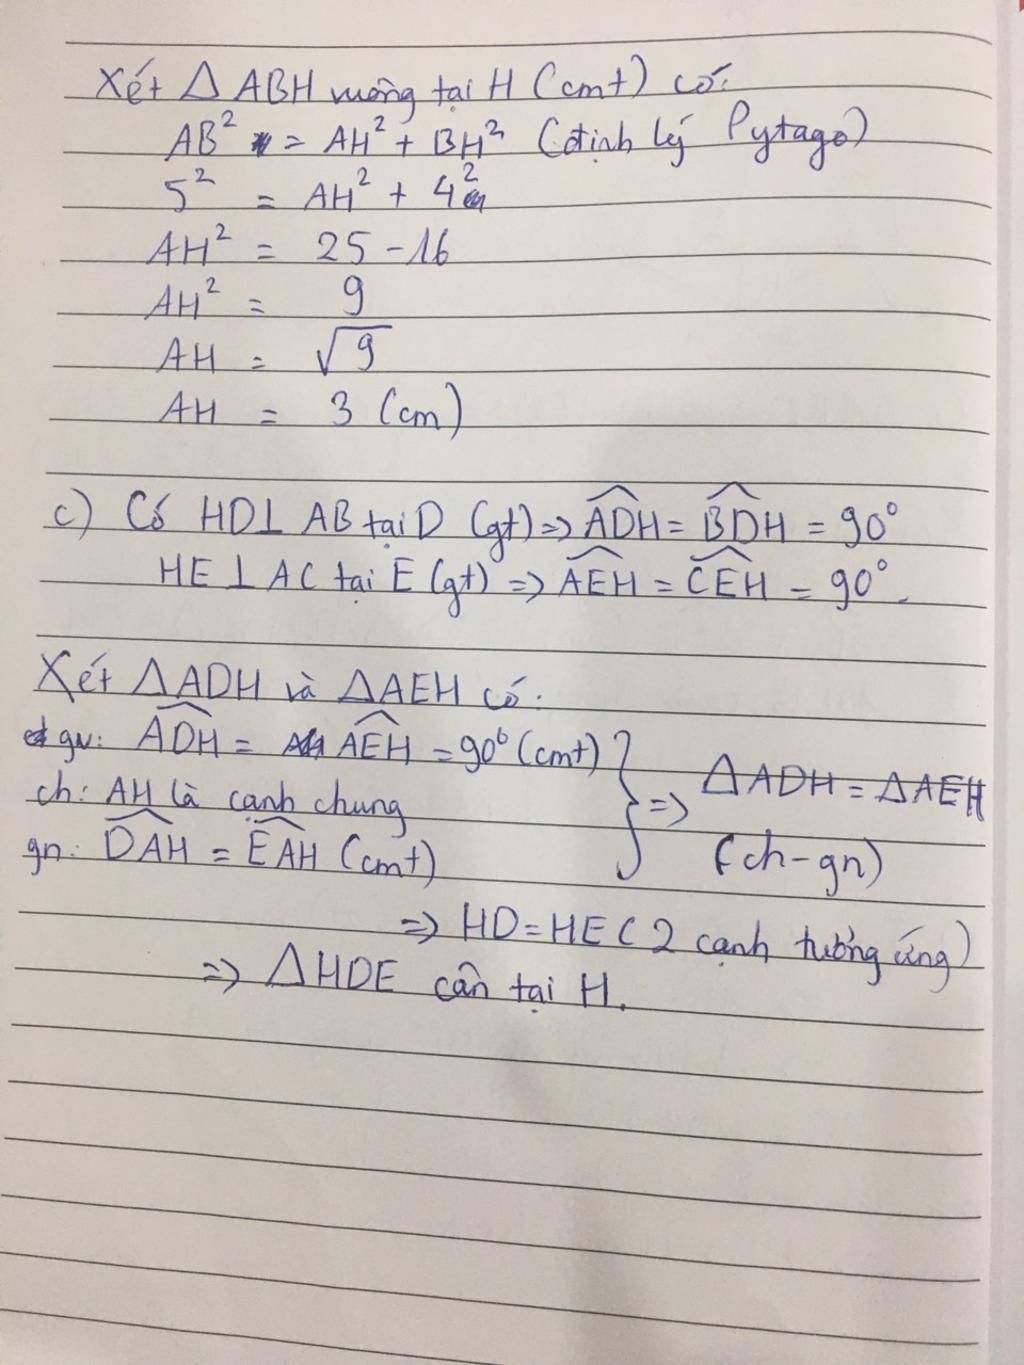 Xét ΔABH vuông tại H (cmt) có:
AB² = AH² + BH² (định lý Pytago)
5² = AH² + 4²
AH² = 25 - 16
AH² = 9
AH = √9
AH = 3 (cm)
c) Có HD⊥AB tại D (gt) => \widehat{ADH} = \widehat{BDH} = 90°
HE⊥AC tại E (gt) => \widehat{AEH} = \widehat{CEH} = 90°.
Xét ΔADH và ΔAEH có:
gv: \widehat{ADH} = \widehat{AEH} = 90° (cmt)
ch: AH là cạnh chung } => ΔADH = ΔAEH
gn: \widehat{DAH} = \widehat{EAH} (cmt) (ch-gn)
=> HD = HE (2 cạnh tương ứng)
=> ΔHDE cân tại H.